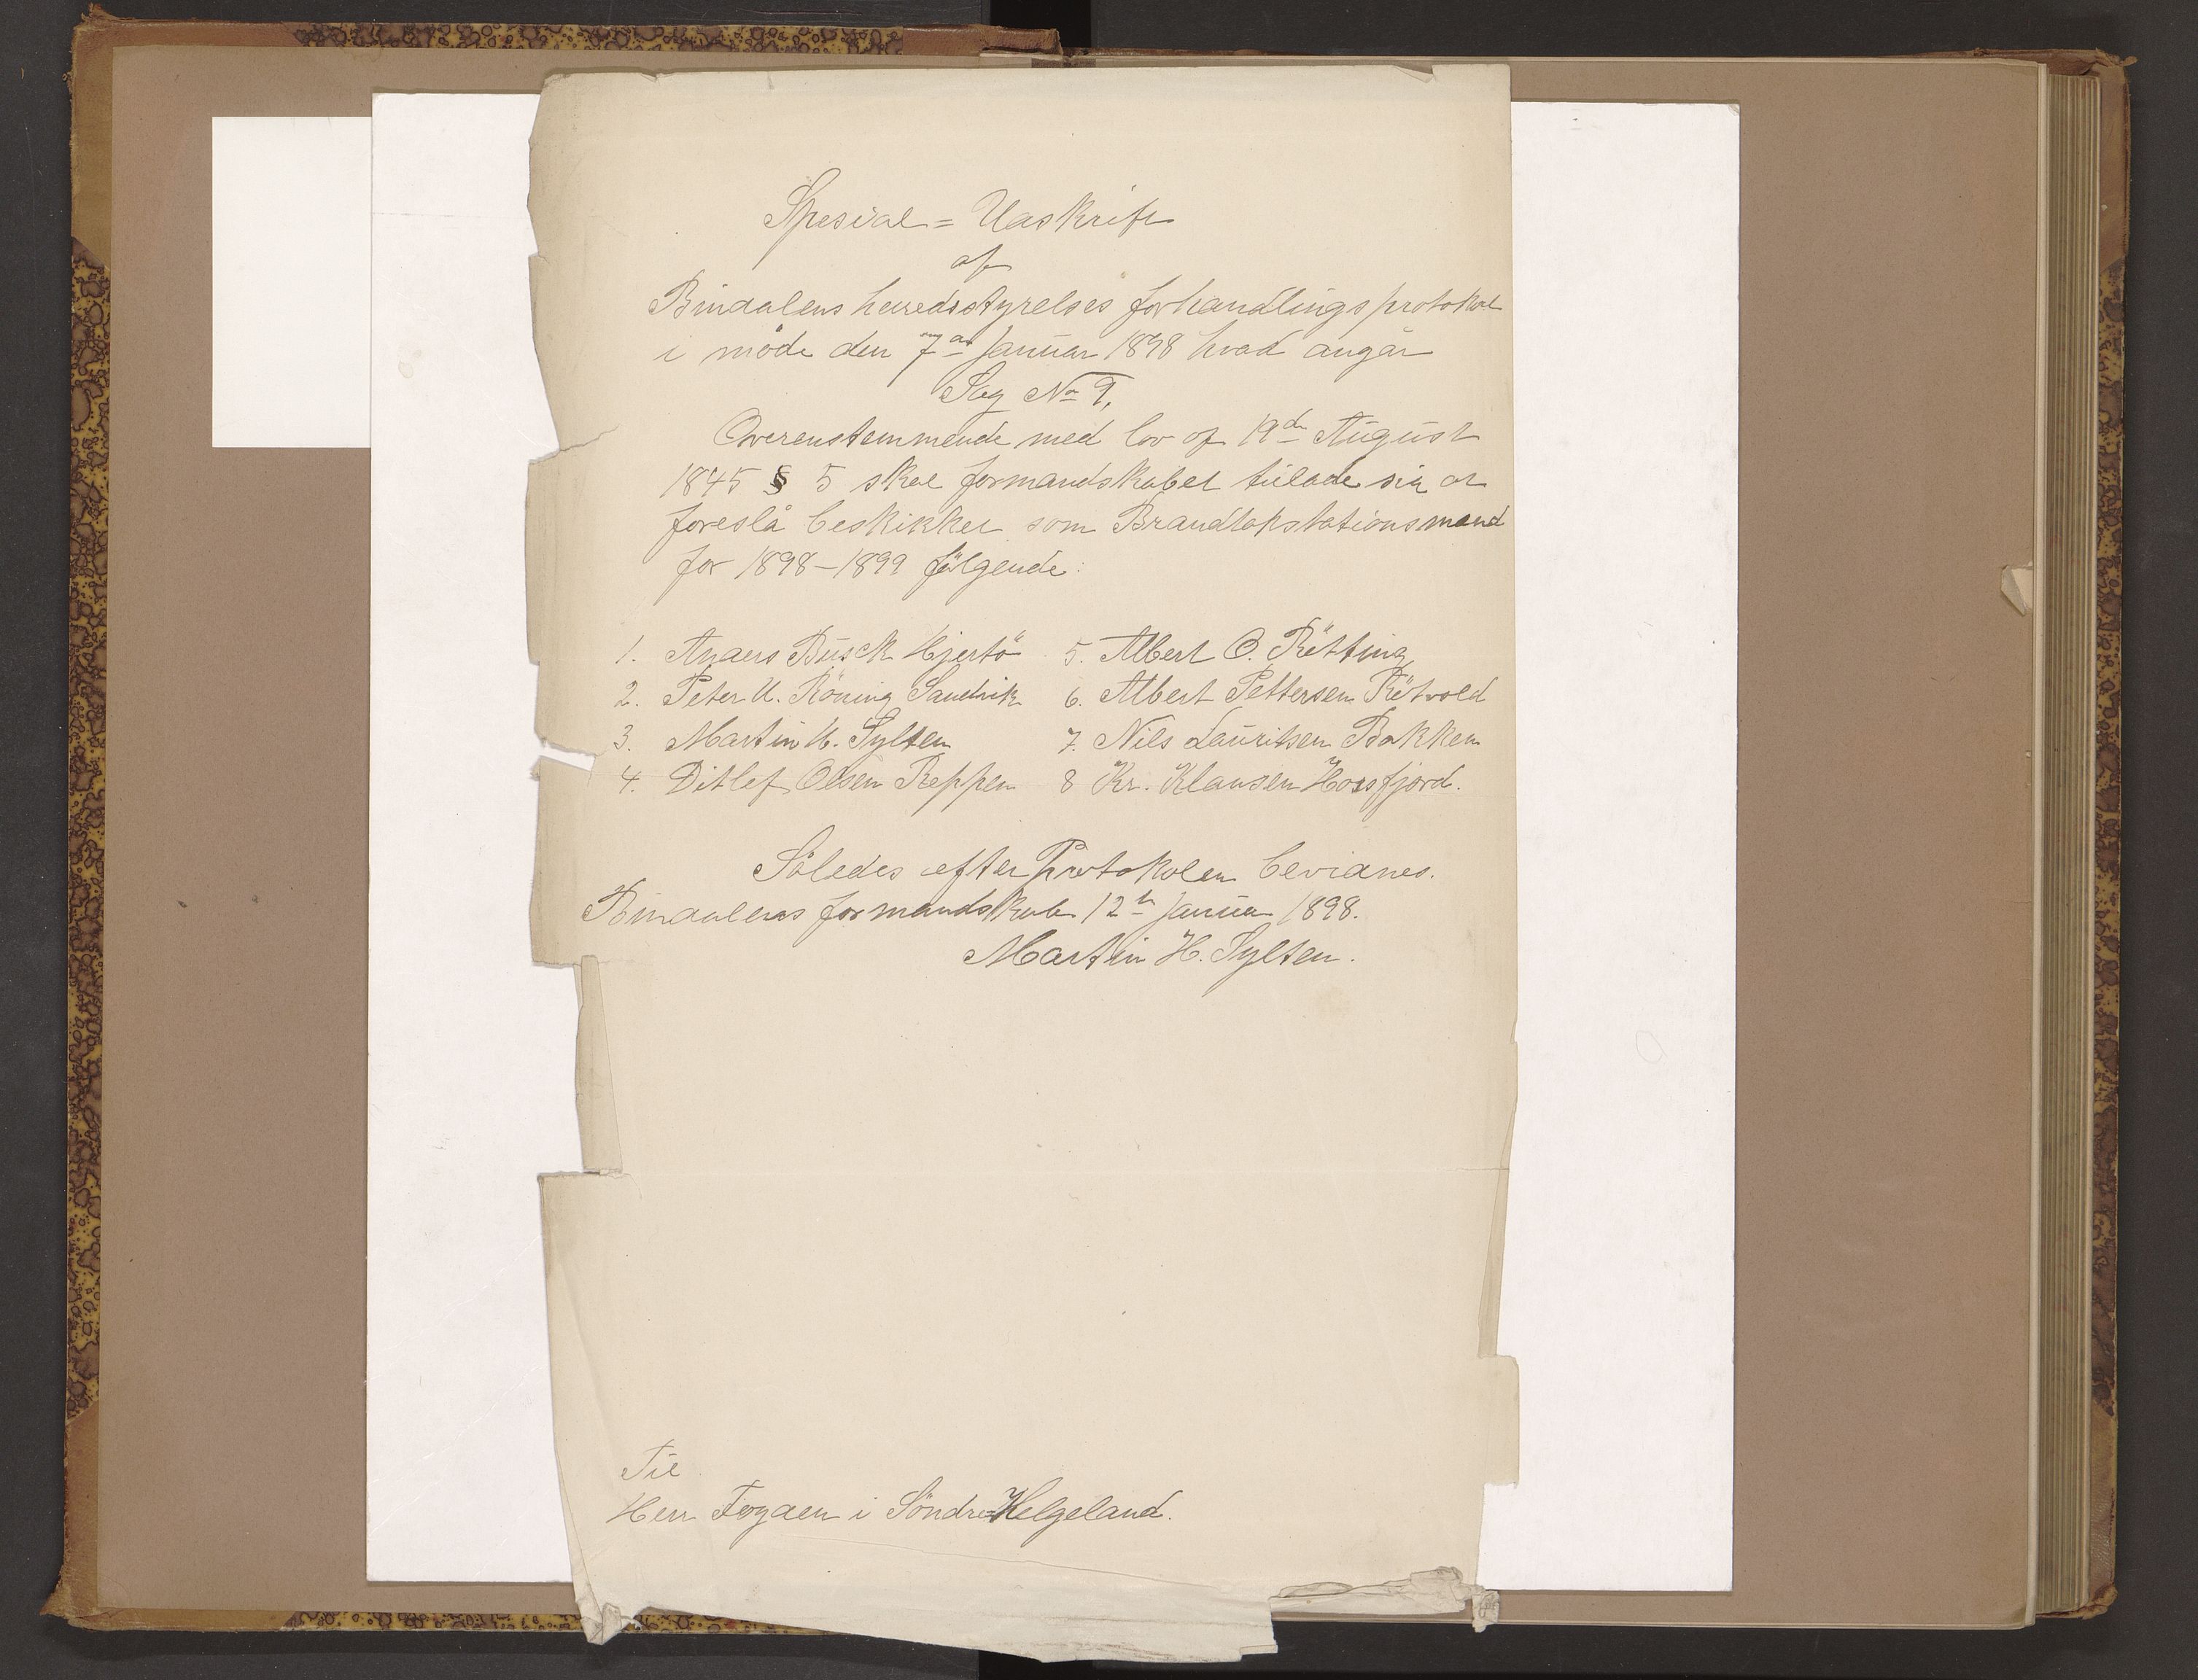 Spesial = Udskrift
af
Bindalens herredsstyrelses forhandlingsprotokol
i möde den 7de Januar 1898 hvad angår
Sag No 9,
Overenstemmende med lov af 19de August
1845 § 5 skal formandskabet tillade sig at
foreslå beskikket som Brandtakstationsmænd
for 1898-1899 fölgende:
1. Anders Busck Hjertö 5. Albert O. Rötting
2. Peter U. Röning Sandvik 6. Albert Pettersen Rötvold
3. Martin H. Sylten 7. Nils Lauritsen Bakken
4. Ditlef Olsen Reppen 8 Kr. Klausen Horsfjord.
Således efter Protokolen bevidnes.
Bindalens formandskab 12te Januar 1898.
Martin H. Sylten.
Til
Herr Fogden i Söndre-Helgeland.